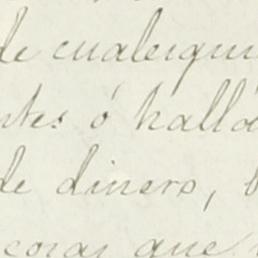 de cualesqui
ntes ó hallá
de dinero, b
cosas que